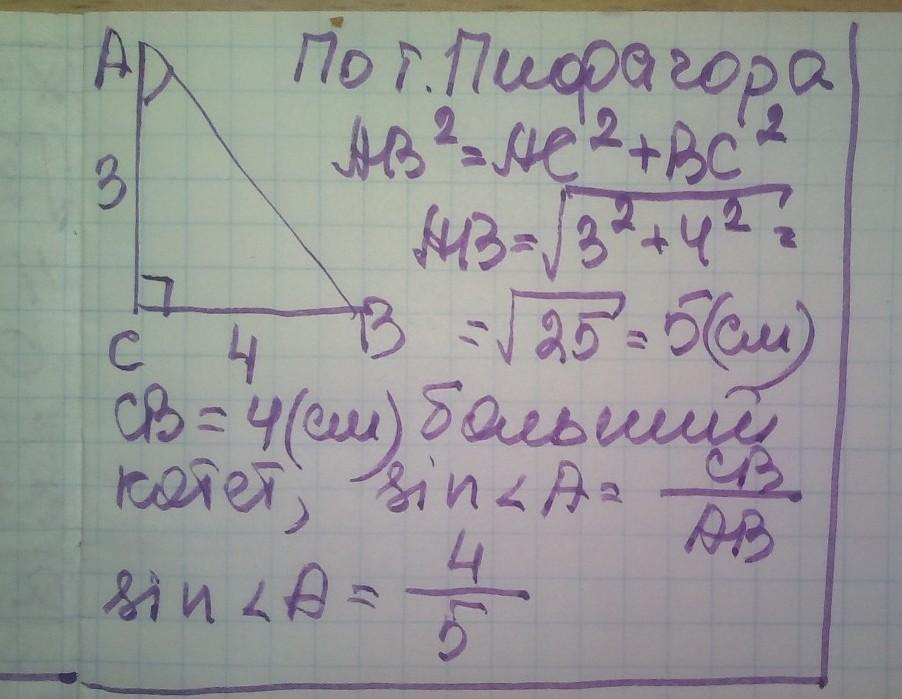 A
3
C
4
B
По т. Пифагора
AB² = AC² + BC²
AB = √3² + 4² =
= √25 = 5(см)
CB = 4(см) больший
катет, sin ∠A = CB/AB
sin ∠A = 4/5